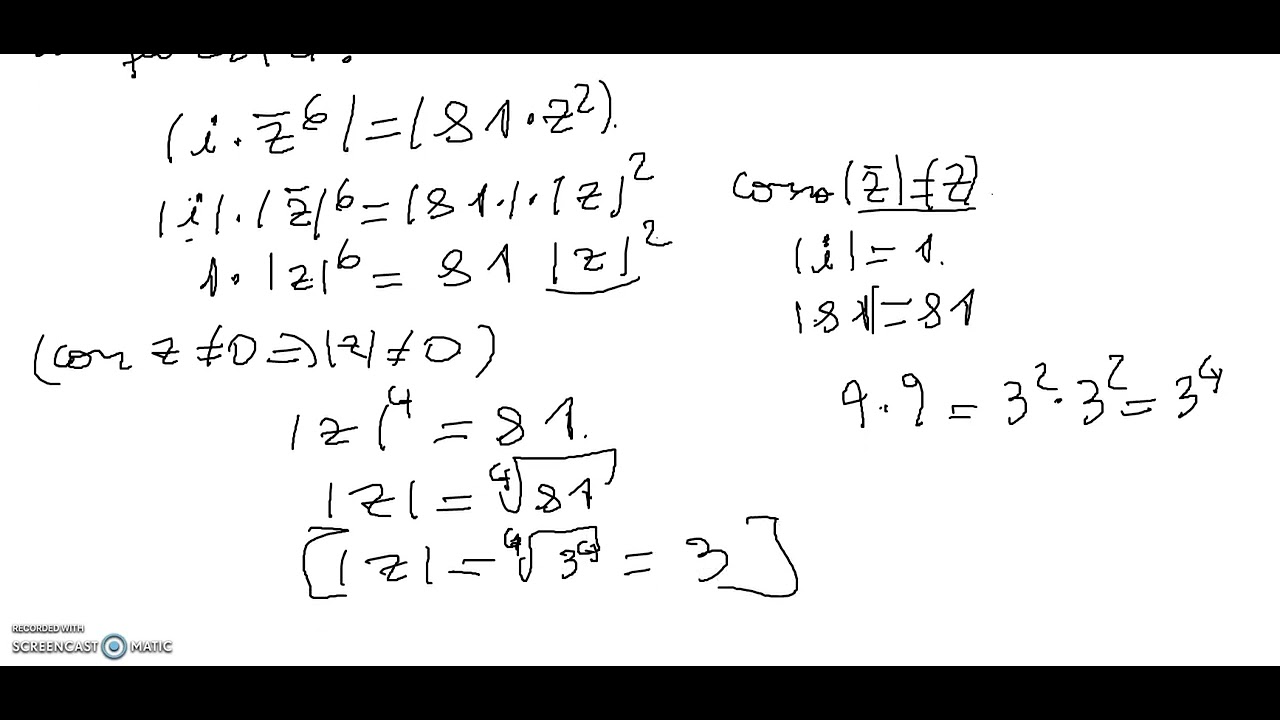 |i · z̄⁶| = |81 · z²|.
|i| · |z̄|⁶ = |81| · |z|²
1 · |z|⁶ = 81 |z|²
(con z ≠ 0 ⇒ |z| ≠ 0)
|z|⁴ = 81.
|z| = ⁴√81
[|z| = ⁴√3⁴ = 3]
como |z̄| = |z|
|i| = 1.
|81| = 81
9 · 9 = 3² · 3² = 3⁴
RECORDED WITH
SCREENCAST MATIC